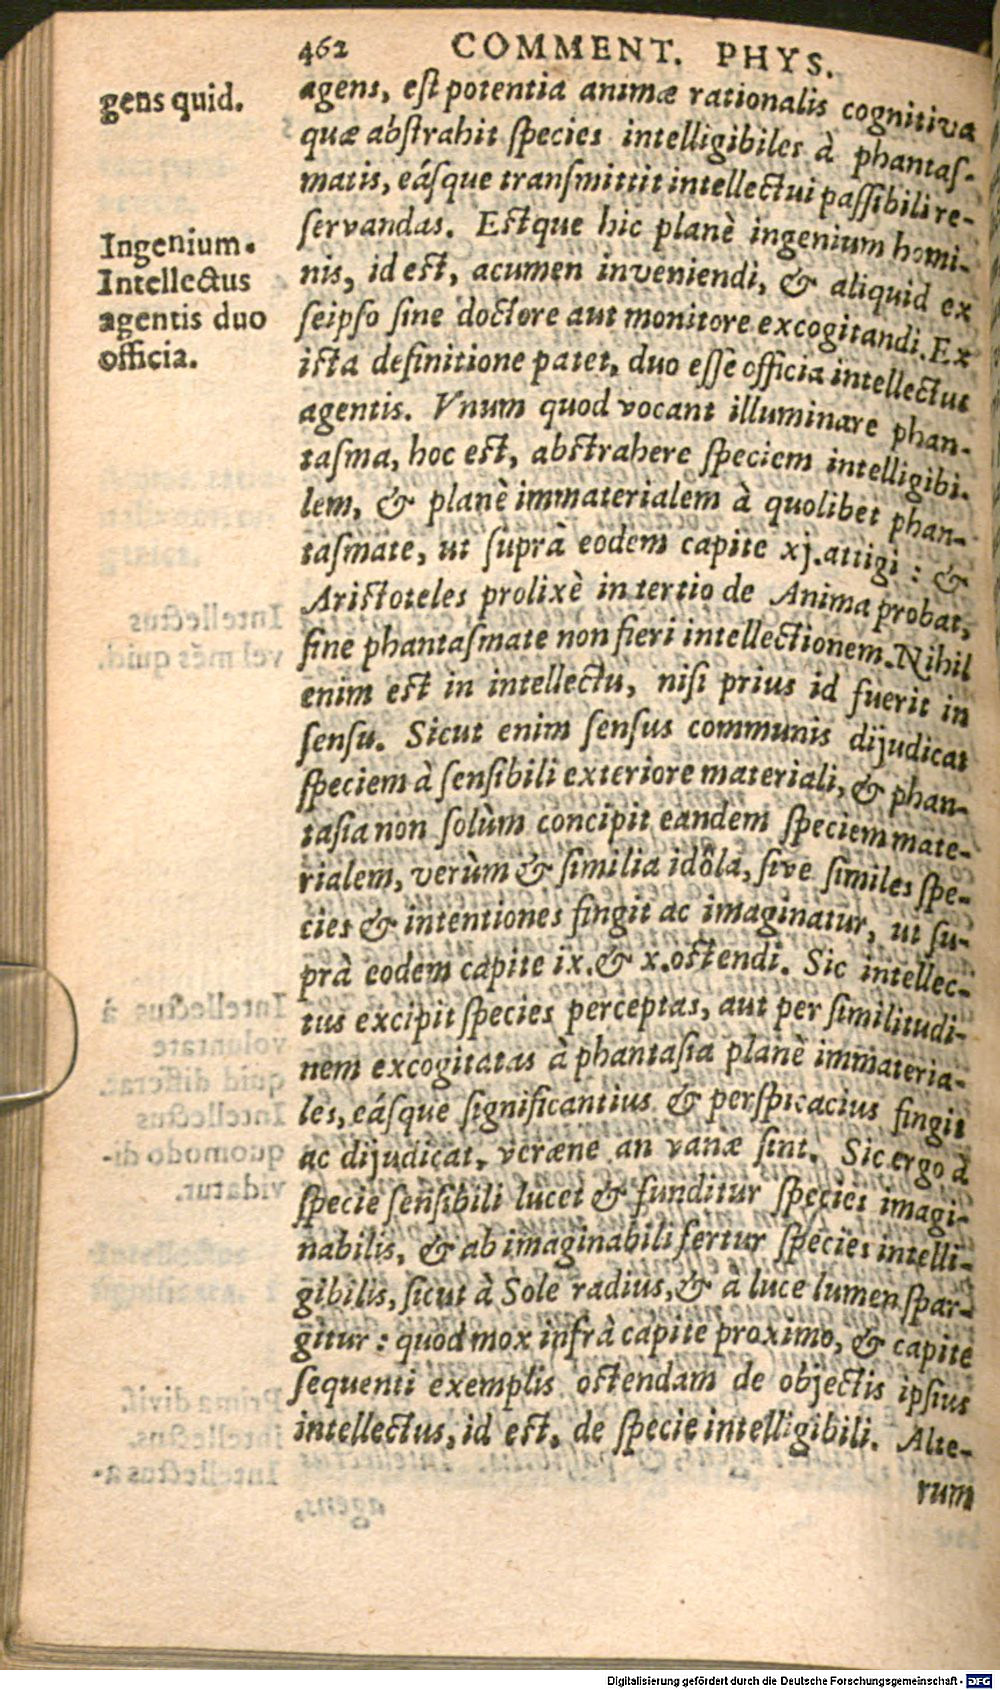 462 COMMENT. PHYS.
gens quid.
Ingenium.
Intellectus
agentis duo
officia.
agens, est potentia animæ rationalis cognitiva
quæ abstrahit species intelligibiles à phantas-
matis, eásque transmittit intellectui passibili re-
servandas. Estque hic planè ingenium homi-
nis, id est, acumen inveniendi, & aliquid ex
seipso sine doctore aut monitore excogitandi. Ex
ista definitione patet, duo esse officia intellectus
agentis. Vnum quod vocant illuminare phan-
tasma, hoc est, abstrahere speciem intelligibi-
lem, & planè immaterialem à quolibet phan-
tasmate, ut suprà eodem capite xj. attigi: &
Aristoteles prolixè in tertio de Anima probat,
sine phantasmate non fieri intellectionem. Nihil
enim est in intellectu, nisi prius id fuerit in
sensu. Sicut enim sensus communis dijudicat
speciem à sensibili exteriore materiali, & phan-
tasia non solùm concipit eandem speciem mate-
rialem, verùm & similia idôla, sive similes spe-
cies & intentiones fingit ac imaginatur, ut su-
prà eodem capite ix. & x. ostendi. Sic intellec-
tus excipit species perceptas, aut per similitudi-
nem excogitatas à phantasia planè immateria-
les, eásque significantius & perspicacius fingit
ac dijudicat, veræne an vanæ sint. Sic ergo à
specie sensibili lucet & funditur species imagi-
nabilis, & ab imaginabili fertur species intelli-
gibilis, sicut à Sole radius, & a luce lumen spar-
gitur: quod mox infrà capite proximo, & capite
sequenti exemplis ostendam de objectis ipsius
intellectus, id est, de specie intelligibili. Alte-
rum
Digitalisierung gefördert durch die Deutsche Forschungsgemeinschaft - DFG